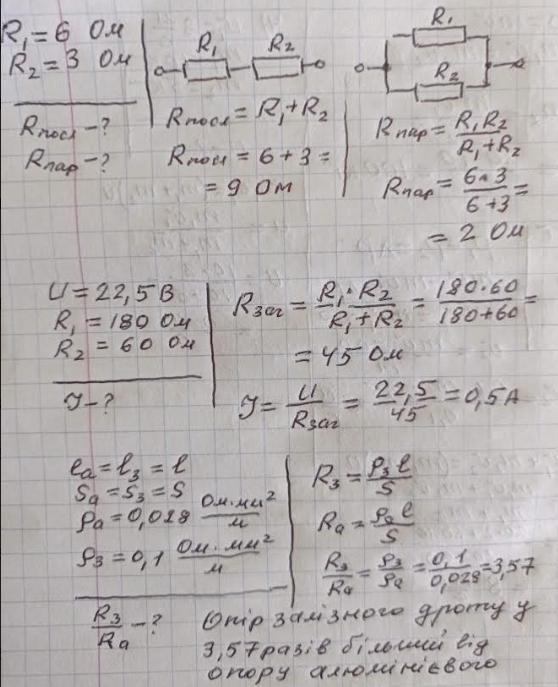 R₁ = 6 Ом
R₂ = 3 Ом
Rпосл - ?
Rпар - ?
R₁ R₂
Rпосл = R₁ + R₂
Rпосл = 6 + 3 =
= 9 Ом
R₁
R₂
Rпар = R₁R₂ / R₁ + R₂
Rпар = 6·3 / 6+3 =
= 2 Ом
U = 22,5 В
R₁ = 180 Ом
R₂ = 60 Ом
I - ?
Rзаг = R₁·R₂ / R₁ + R₂ = 180·60 / 180+60 =
= 45 Ом
I = U / Rзаг = 22,5 / 45 = 0,5 А
la = lз = l
Sa = Sз = S
ρa = 0,028 Ом·мм² / м
ρз = 0,1 Ом·мм² / м
Rз / Ra - ?
Rз = ρз l / S
Ra = ρa l / S
Rз / Ra = ρз / ρa = 0,1 / 0,028 = 3,57
Опір залізного дроту у
3,57 разів більший від
опору алюмінієвого